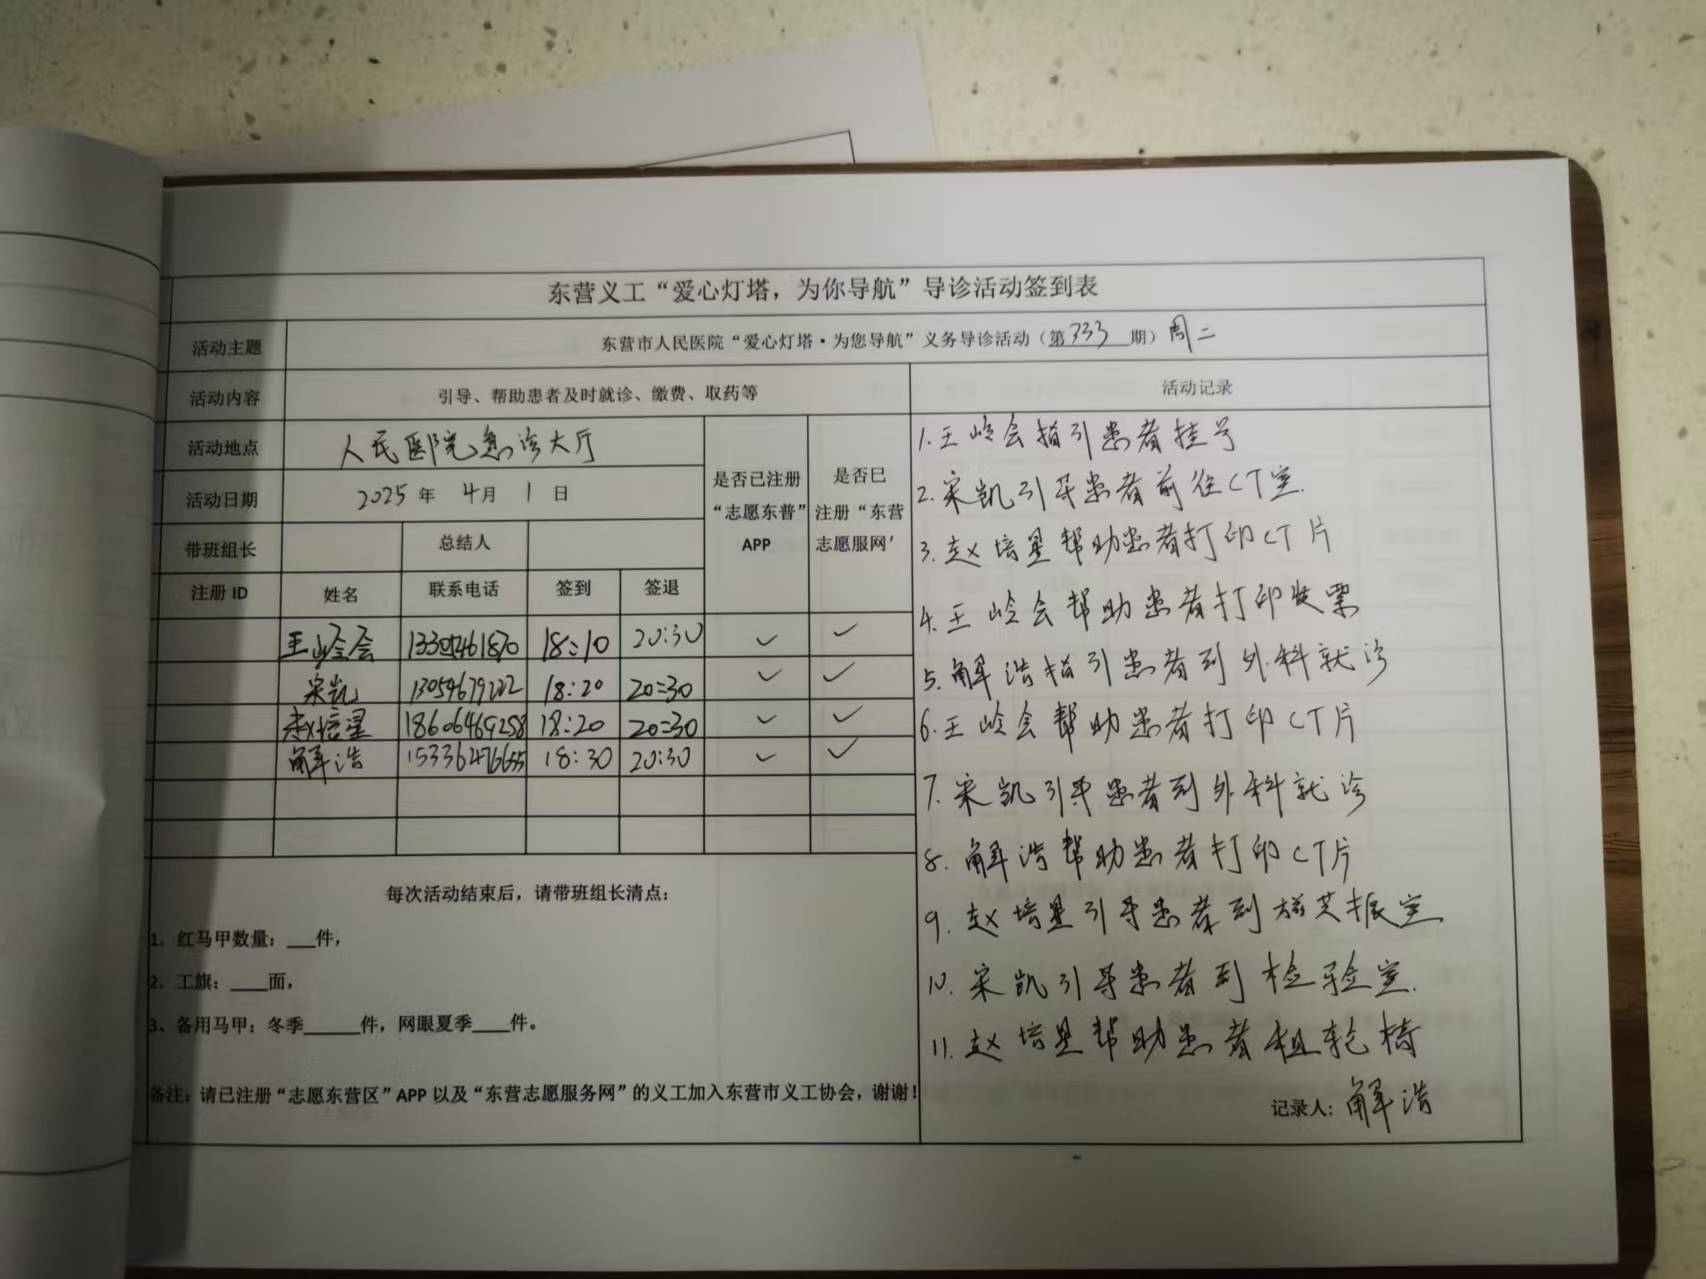 东营义工“爱心灯塔，为你导航”导诊活动签到表
活动主题 东营市人民医院“爱心灯塔·为您导航”义务导诊活动（第333期）周二
活动内容 引导、帮助患者及时就诊、缴费、取药等 活动记录
活动地点 人民医院急诊大厅
活动日期 2025年 4月 1日
是否已注册
“志愿东普”
APP
是否已
注册“东营
志愿服网’
带班组长 总结人
注册 ID 姓名 联系电话 签到 签退
王岭会 18:10 20:30 ✓ ✓
宋凯 13054679222 18:20 20:30 ✓ ✓
赵培星 18606469258 18:20 20:30 ✓ ✓
解浩 15336476655 18:30 20:30 ✓ ✓
每次活动结束后，请带班组长清点：
1、红马甲数量：___件，
2、工旗：____面，
3、备用马甲：冬季______件，网眼夏季____件。
备注：请已注册“志愿东营区”APP 以及“东营志愿服务网”的义工加入东营市义工协会，谢谢！
1.王岭会指引患者挂号
2.宋凯引导患者前往CT室.
3.赵培星帮助患者打印CT片
4.王岭会帮助患者打印发票
5.解浩指引患者到外科就诊
6.王岭会帮助患者打印CT片
7.宋凯引导患者到外科就诊
8.解浩帮助患者打印CT片
9.赵培星引导患者到核共振室
10.宋凯引导患者到检验室.
11.赵培星帮助患者租轮椅
记录人: 解浩